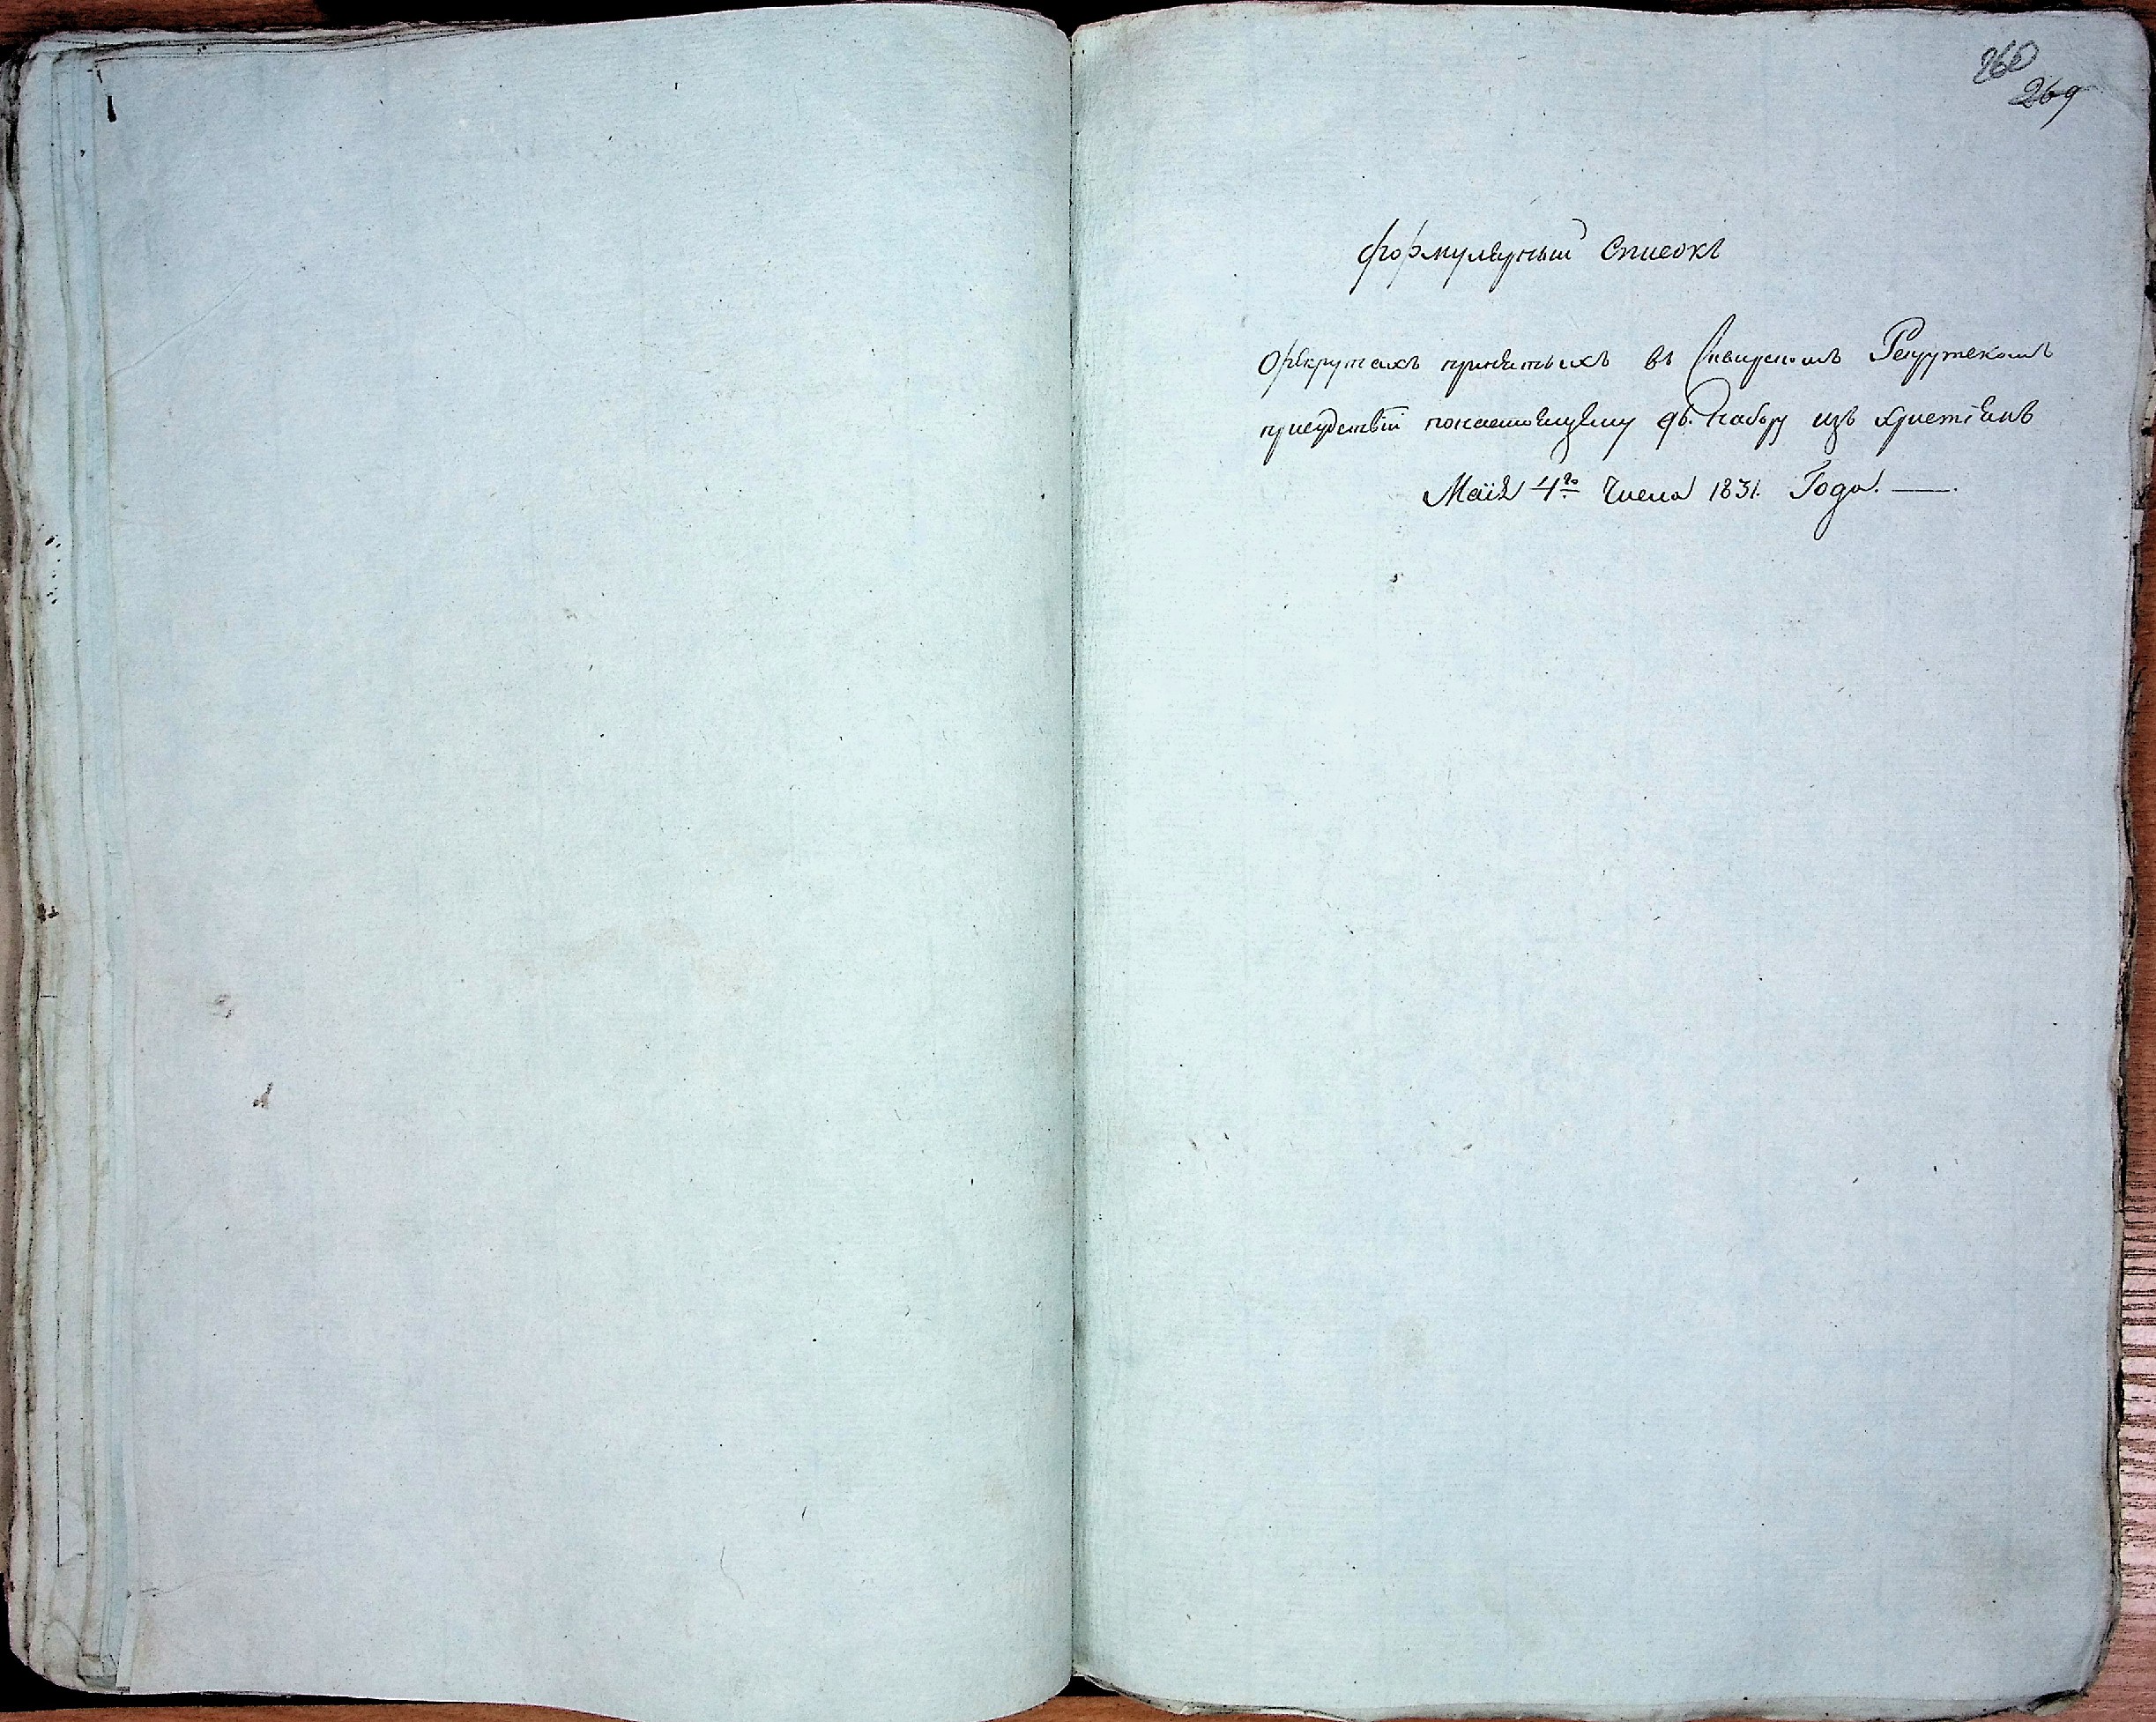 260
269
Формулярный Списокъ
Орекрутахъ принятыхъ въ Сквирскомъ Рекрутскомъ
присудствіи понастоящему 96. набору изъ христіанъ
Маія 4го Числа 1831. Года. —.